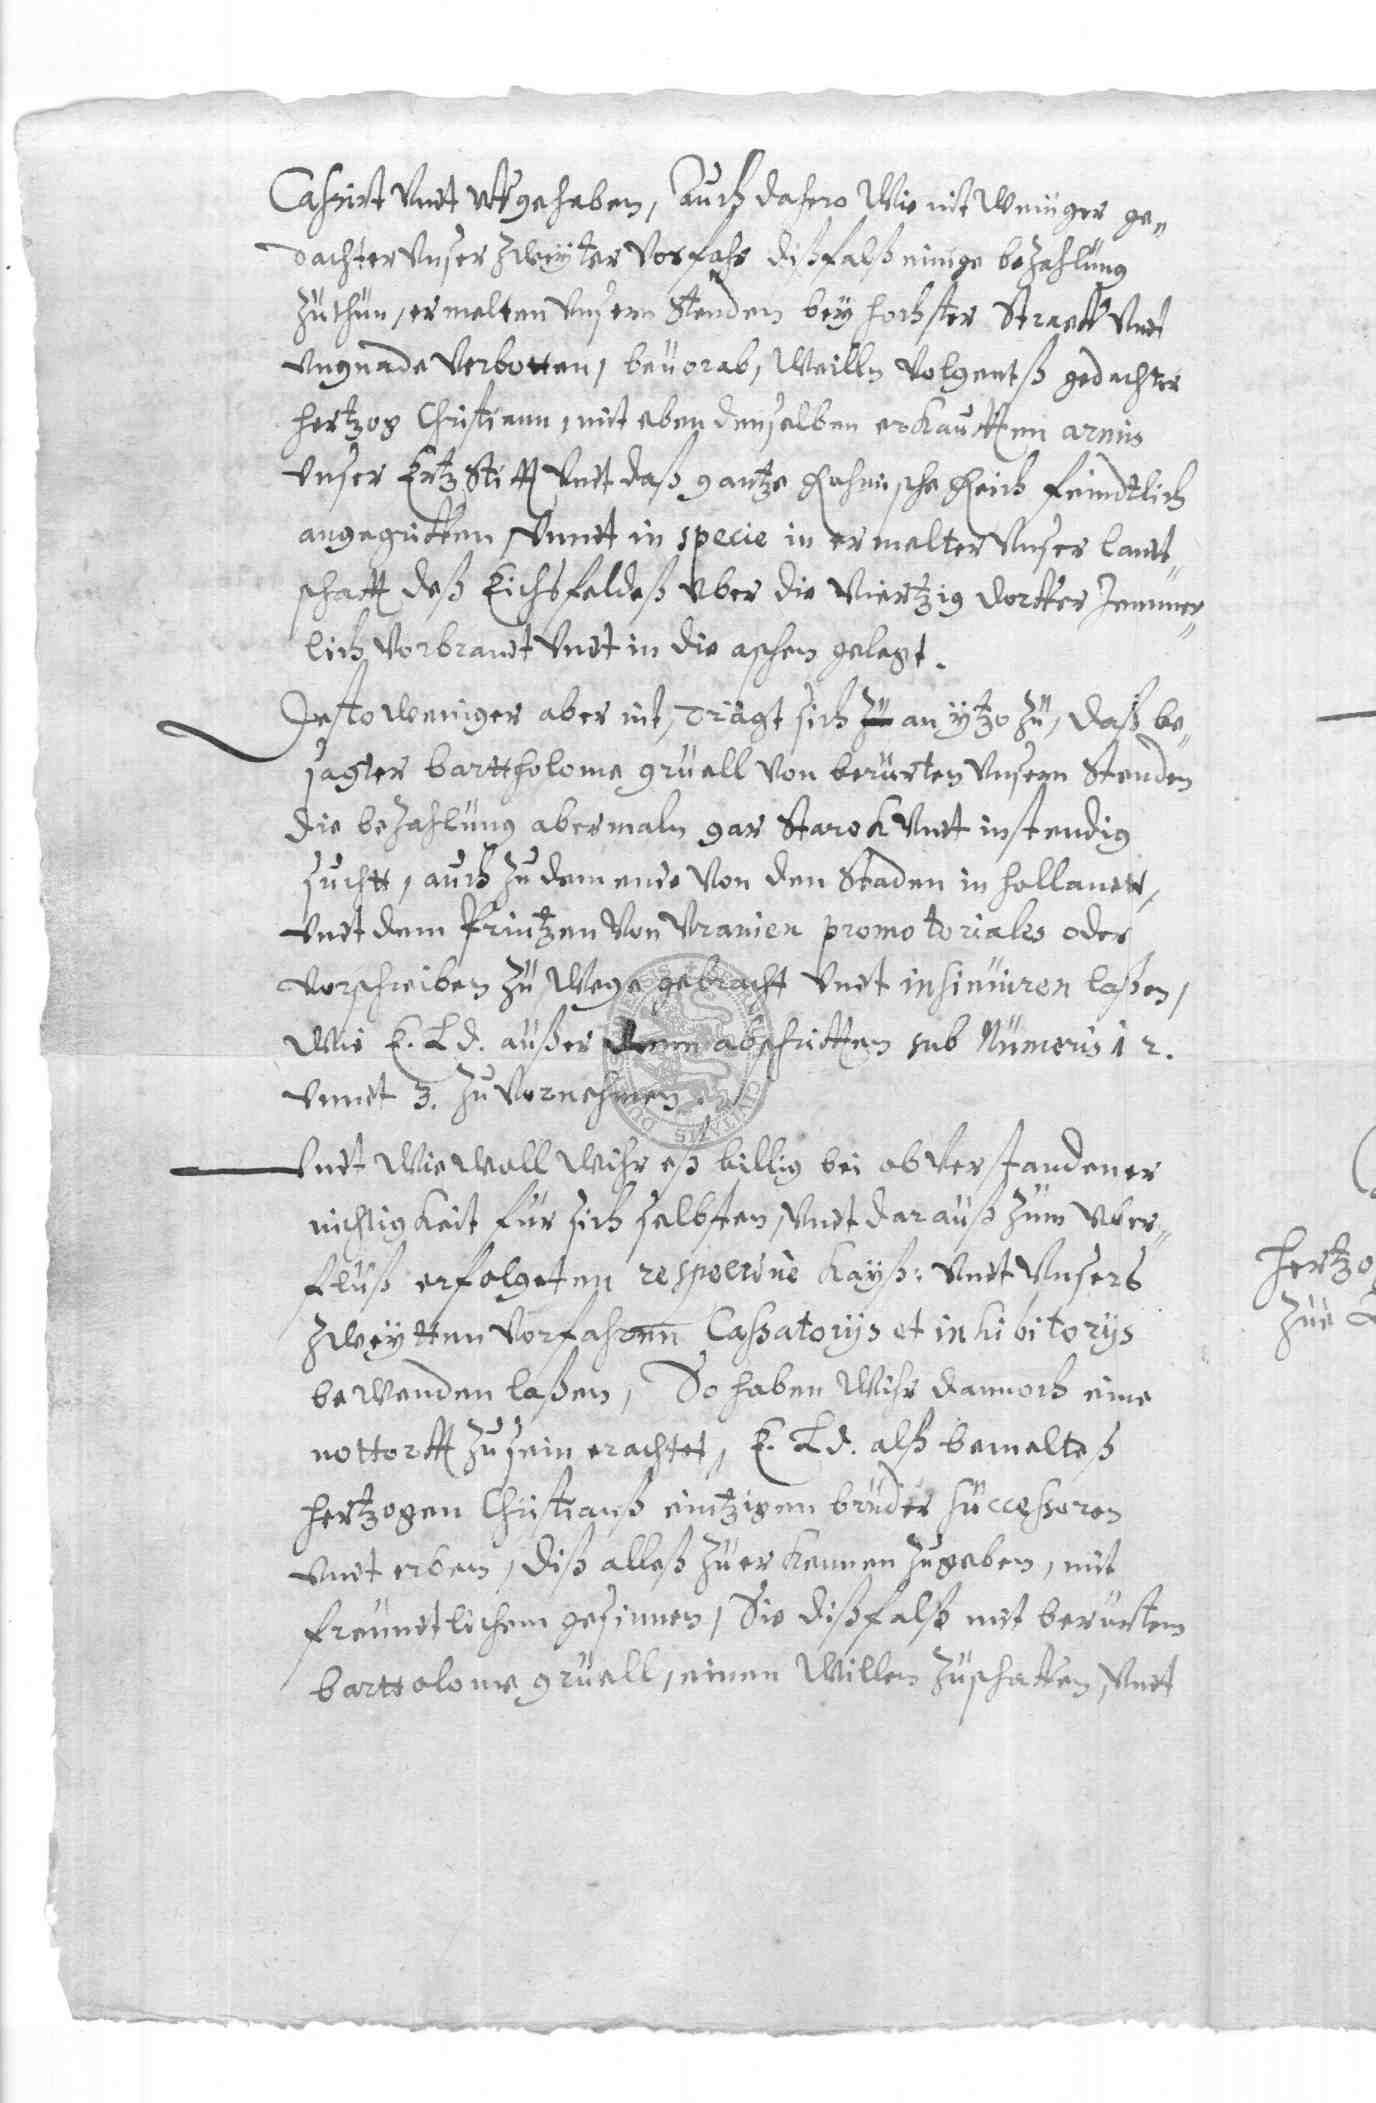 Cassirt vndt uffgehaben, Auch dahero Wie nit Weniger ge„
dachter vnser Zweyter Vorfahr dißfalß einige bezahlung
Zuthun, ermelten vnsern Stenden bey hochster Straeff vndt
vngnade verbotten, beuorab, Weilln volgentß gedachter
hertzog Christiann, mit eben denselben erkaufften armis
vnser Ertz Stifft vndt daß gantze Röhmische Reich feindtlich
angegriffen, vnndt in specie in ermelter vnser landt„
schafft deß Eichsfeldeß vber die Viertzig dorffer Jemmer„
lich vorbrandt vndt in die aschen gelegt.
Desto weniger aber nit, trägt sich Zu an ytzo Zu, daß be„
sagter barttholome gruell von berürten vnsern Stenden
die bezahlung abermaln gar Starck vndt instendig
sucht, auch zu dem ende von den Staden in hollandt,
vndt dem Printzen von Vranien promotoriales oder
vorschreiben zu Wege gebracht vndt insinuiren laßen,
Wie E. Ld. außer denen abschrifften sub Numeris 1 2.
vnndt 3. zu vernehmen.
Vndt Wiewoll Wihr eß billig bei obverstandener
nichtigkeit für sich selbsten, vndt darauß zum vber„
fluß erfolgeten respective Kayß: vndt Vnsers
Zweytten Vorfahren Cassatorijs et inhibitorijs
bewenden laßen, So haben Wihr dannoch eine
nottorfft zu sein erachtet, E. Ld. alß bemelteß
hertzogen Christianß eintzigen bruder successoren
vndt erben, diß alleß zu erkennen zugeben, mit
freundtlichem gesinnen, Sie dißfalß mit berürtem
barttolome gruell, einen Willen zuschaffen, vndt
hertzo
Zue